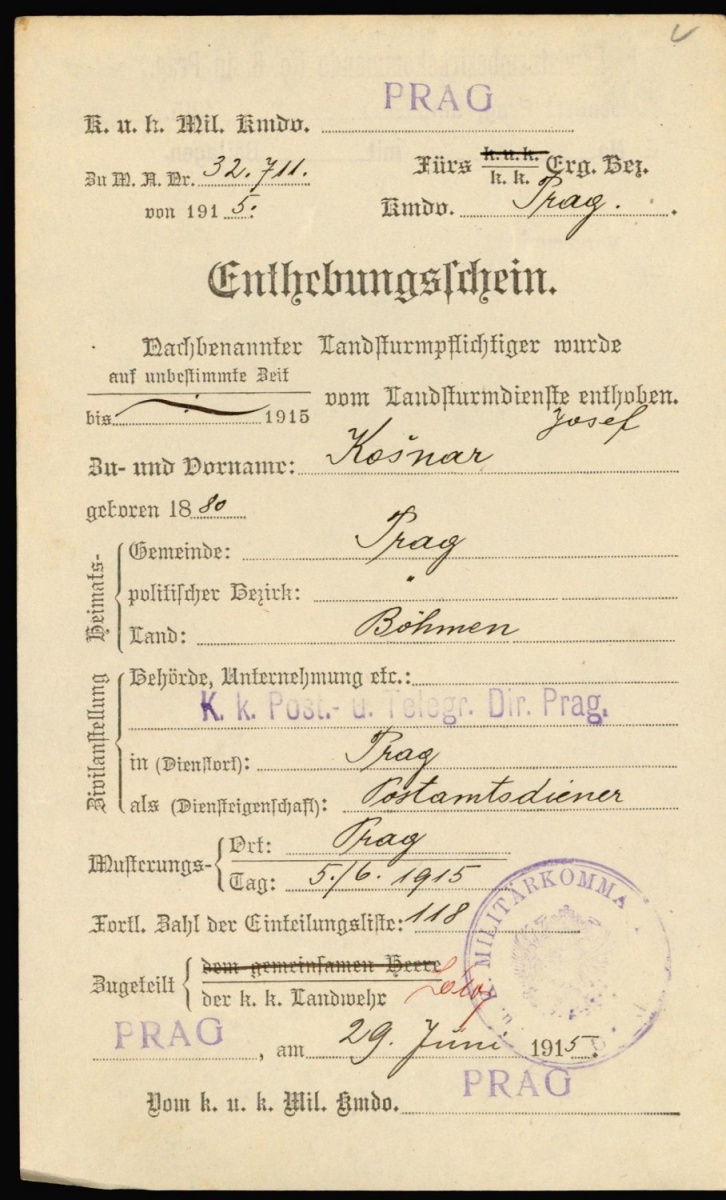 PRAG
K. u. k. Mil. Kmdo.
Zu M. A. Nr. 32.711.
von 1915.
Fürs k. u. k. Erg. Bez.
k. k.
Kmdo. Prag.
Enthebungsschein.
Nachbenannter Landsturmpflichtiger wurde
auf unbestimmte Zeit
bis 1915 vom Landsturmdienste enthoben.
Josef
Zu- und Vorname: Košnar
geboren 1880
Heimats-
Gemeinde: Prag
politischer Bezirk: "
Land: Böhmen
Zivilanstellung
Behörde, Unternehmung etc.:
K. k. Post.- u. Telegr. Dir. Prag.
in (Dienstort): Prag
als (Diensteigenschaft): Postamtsdiener
Musterungs-
Ort: Prag
Tag: 5./6. 1915
Fortl. Zahl der Einteilungsliste: 118
Zugeteilt
dem gemeinsamen Heere
der k. k. Landwehr
MILITÄRKOMMA
PRAG, am 29. Juni 1915.
PRAG
Vom k. u. k. Mil. Kmdo.